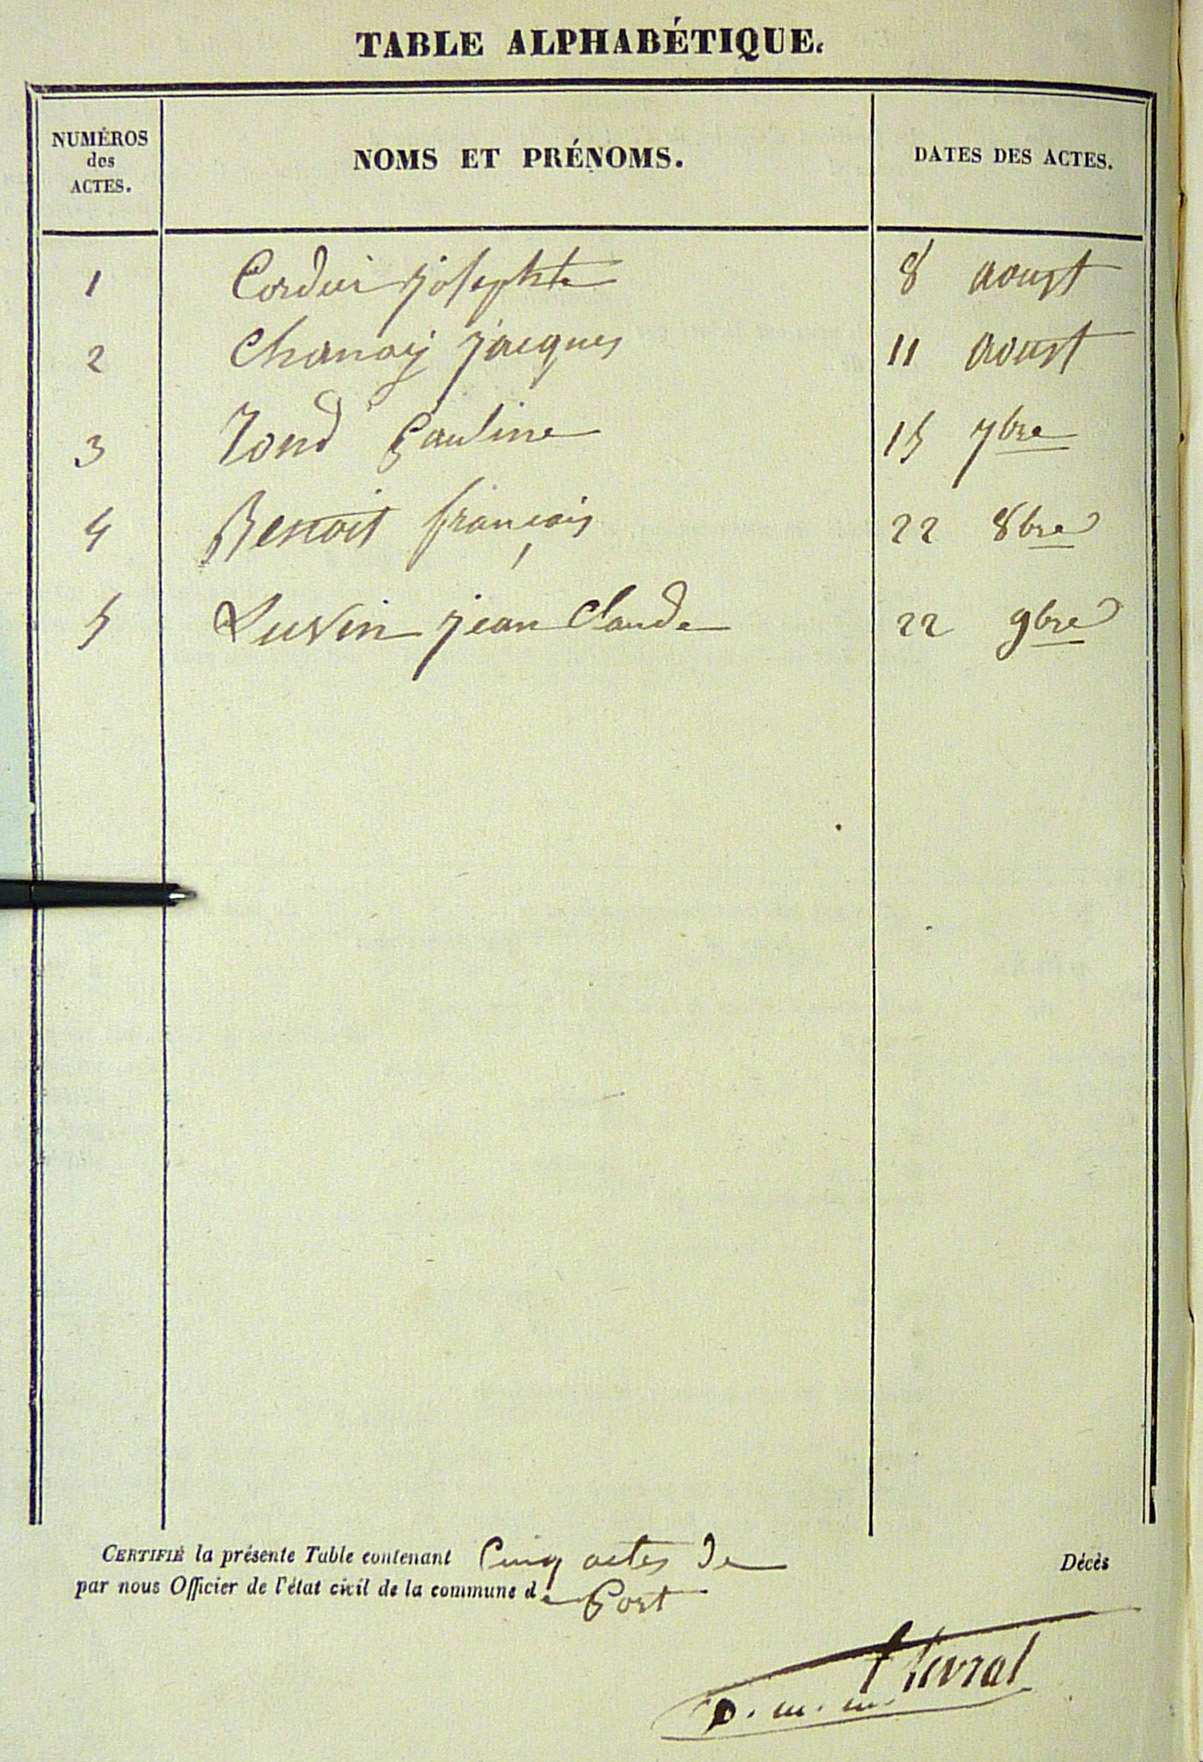 TABLE ALPHABÉTIQUE.
NUMÉROS
des
ACTES.
NOMS ET PRÉNOMS.
DATES DES ACTES.
1 Cordier josephte 8 aoust
2 Chanay jacques 11 aoust
3 Pauline 15 7bre
4 Benoit françois 22 8bre
5 Luvin jean Claude 22 9bre
CERTIFIÉ la présente Table contenant Cinq actes de Décès
par nous Officier de l'état civil de la commune de Port